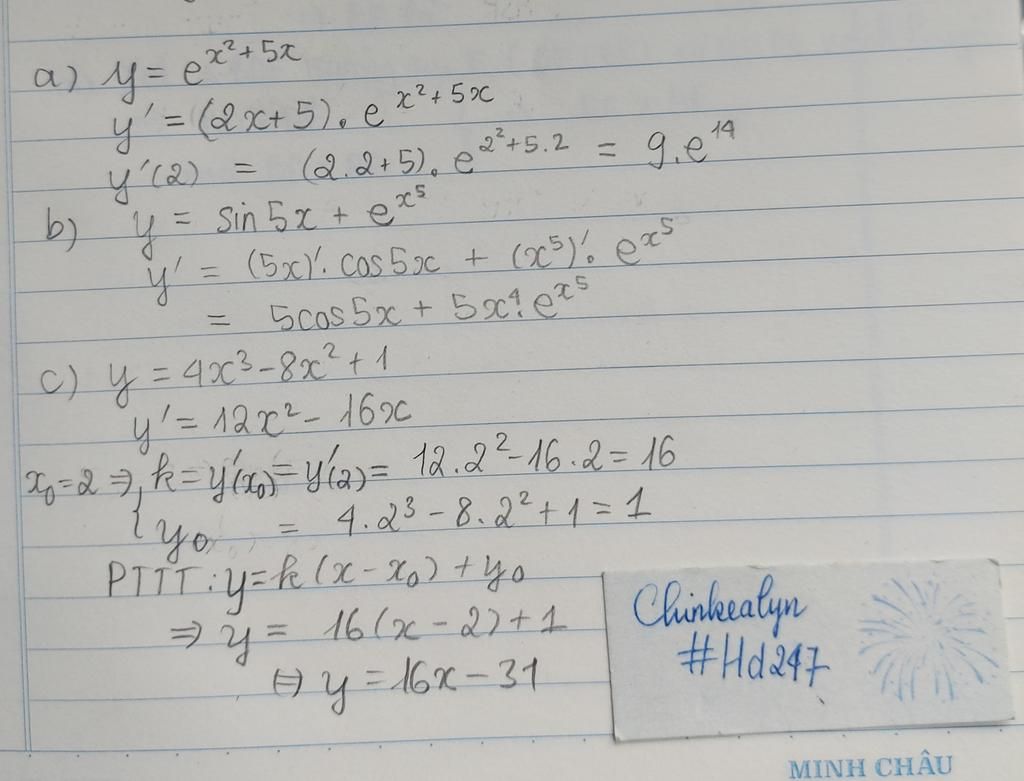 a) y = e^{x²+5x}
y' = (2x+5).e^{x²+5x}
y'(2) = (2.2+5).e^{2²+5.2} = 9.e^{14}
b) y = sin5x + e^{x⁵}
y' = (5x)'.cos5x + (x⁵)'.e^{x⁵}
= 5cos5x + 5x⁴.e^{x⁵}
c) y = 4x³-8x²+1
y' = 12x² - 16x
x₀=2 ⇒ { k = y'(x₀) = y'(2) = 12.2²-16.2 = 16
y₀ = 4.2³ - 8.2² + 1 = 1
PTTT: y=k(x-x₀)+y₀
⇒ y = 16(x-2)+1
⇔ y = 16x-31
Chinkealyn
#Hd247
MINH CHÂU